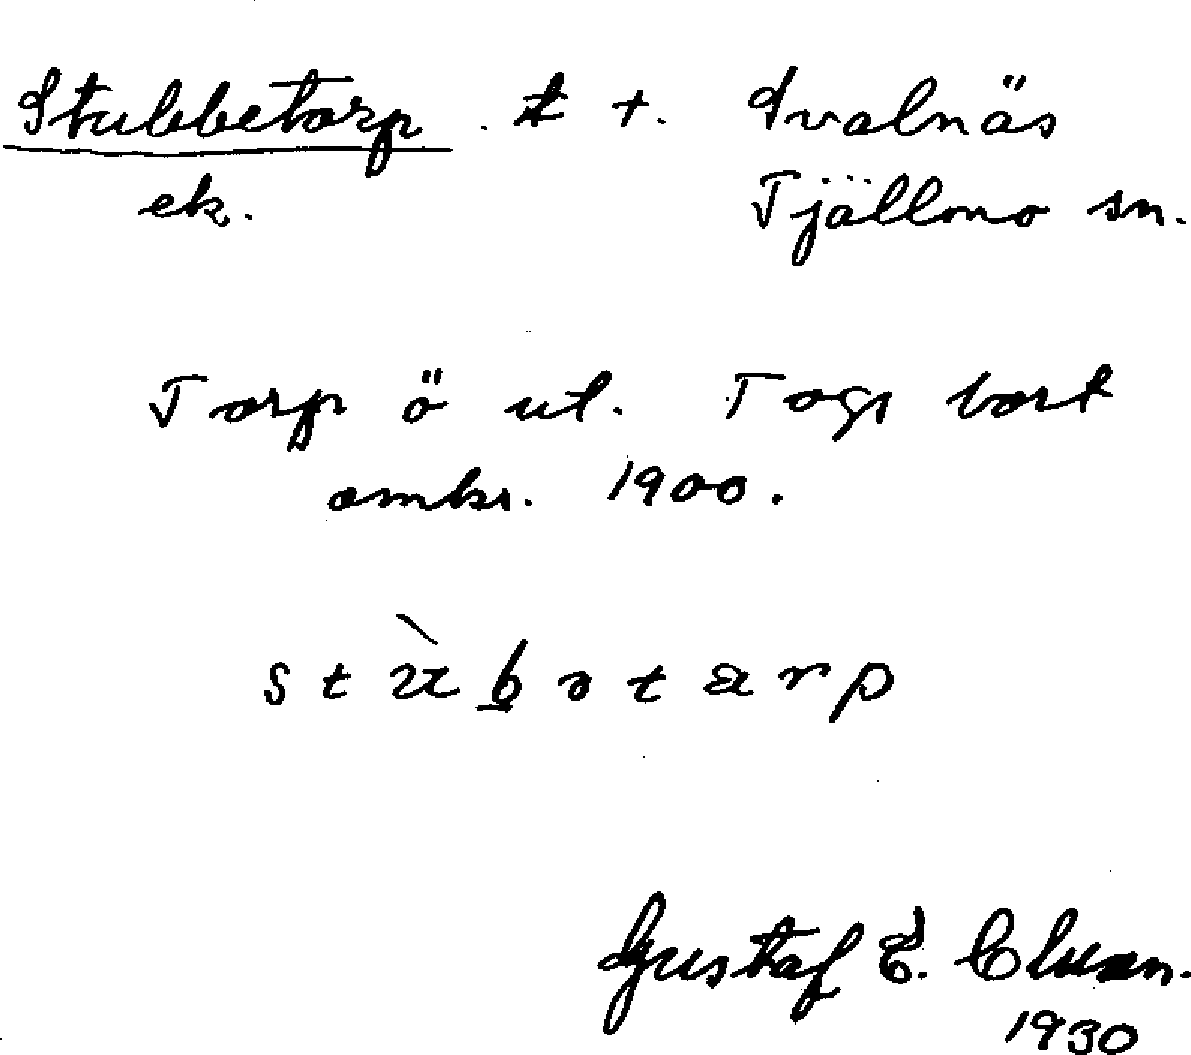 Stubbetorp. t +. Svalnäs
ek. Tjällmo sn.
Torp ö ut. Togs bort
omkr. 1900.
Gustaf E.
1930